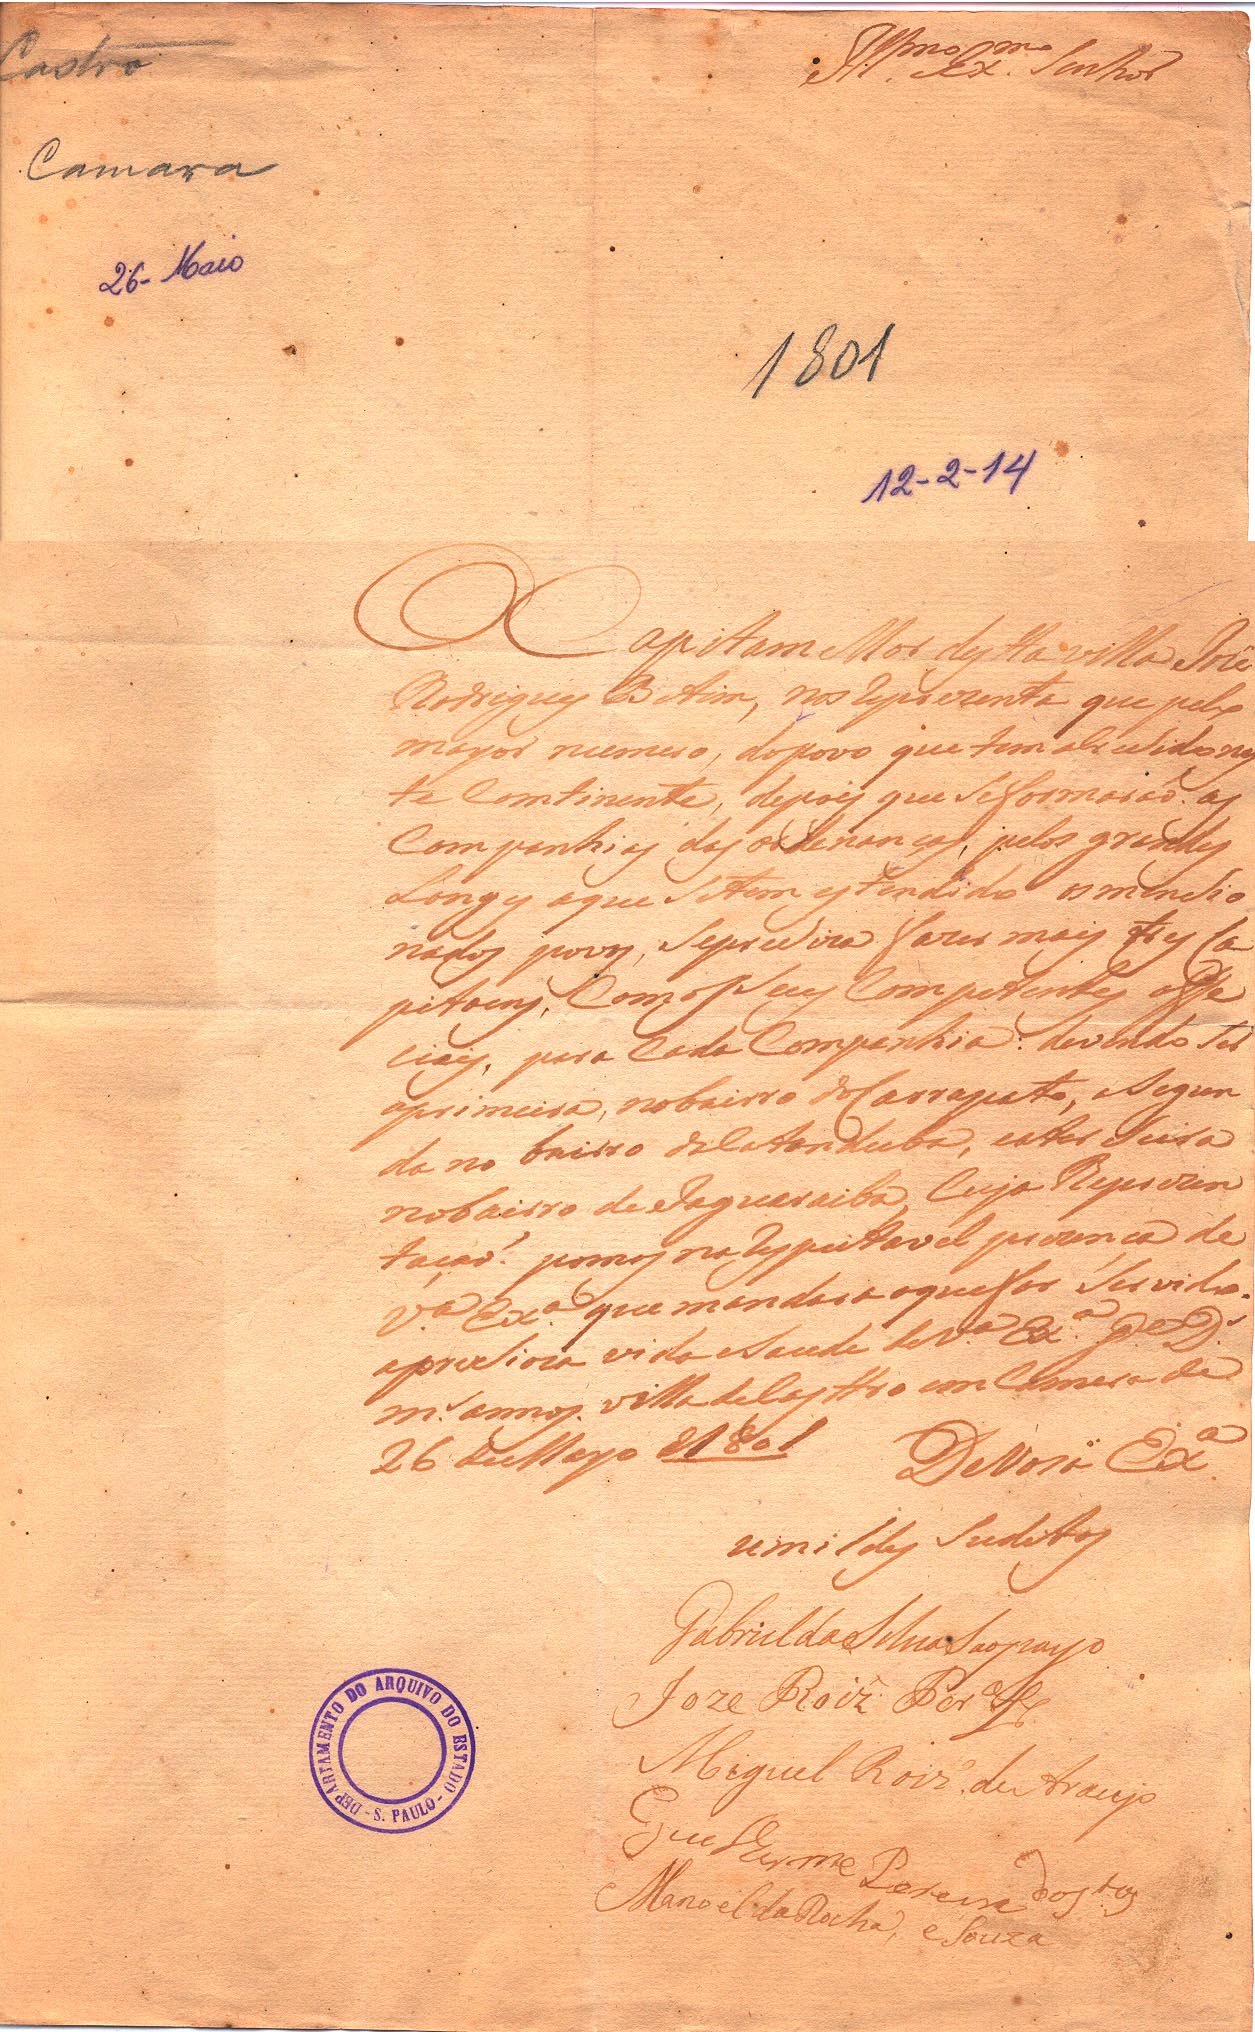 Castro
Illmo. Exmo. Senhor
Camara
26- Maio
1801
12-2-14
O Capitam Mor desta villa José
Rodrigues Betim, nos reprezenta que pelo
mayor numero, do povo que tem alsecido nes
te Continente, depois que se formaraõ. as
Companhias das ordenanças, pelos grandes
Longes a que se tem estendido os mencio
nados povos, se preciza fazer mais tres Ca
pitaens, Com os seus Competentes offe
ciais, para Cada Companhia: devendo ser
aprimeira, nobairro do Carrapato, a Segun
da no bairro de Catanduba, eaterseira
nobairro de Jaguaraiba, Cuja Reprezen
taçaõ. pomos na respeitavel prezença de
V.ª Ex.ª que mandara oque for Servido.
apreciosa vida eSaude de V.ª Ex.ª G.e D.s
m.s annos. villa de Castro em Camera de
26 de Mayo d 1801
De Vosa Ex.ª
umildes Suditos
Gabriel da Silva Saopayo
Joze Roiz Per.ª
Miguel Roiz. de Araujo
Guilherme Pereira dos stos
Manoel da Rocha, e Souza
DEPARTAMENTO DO ARQUIVO DO ESTADO - S. PAULO -